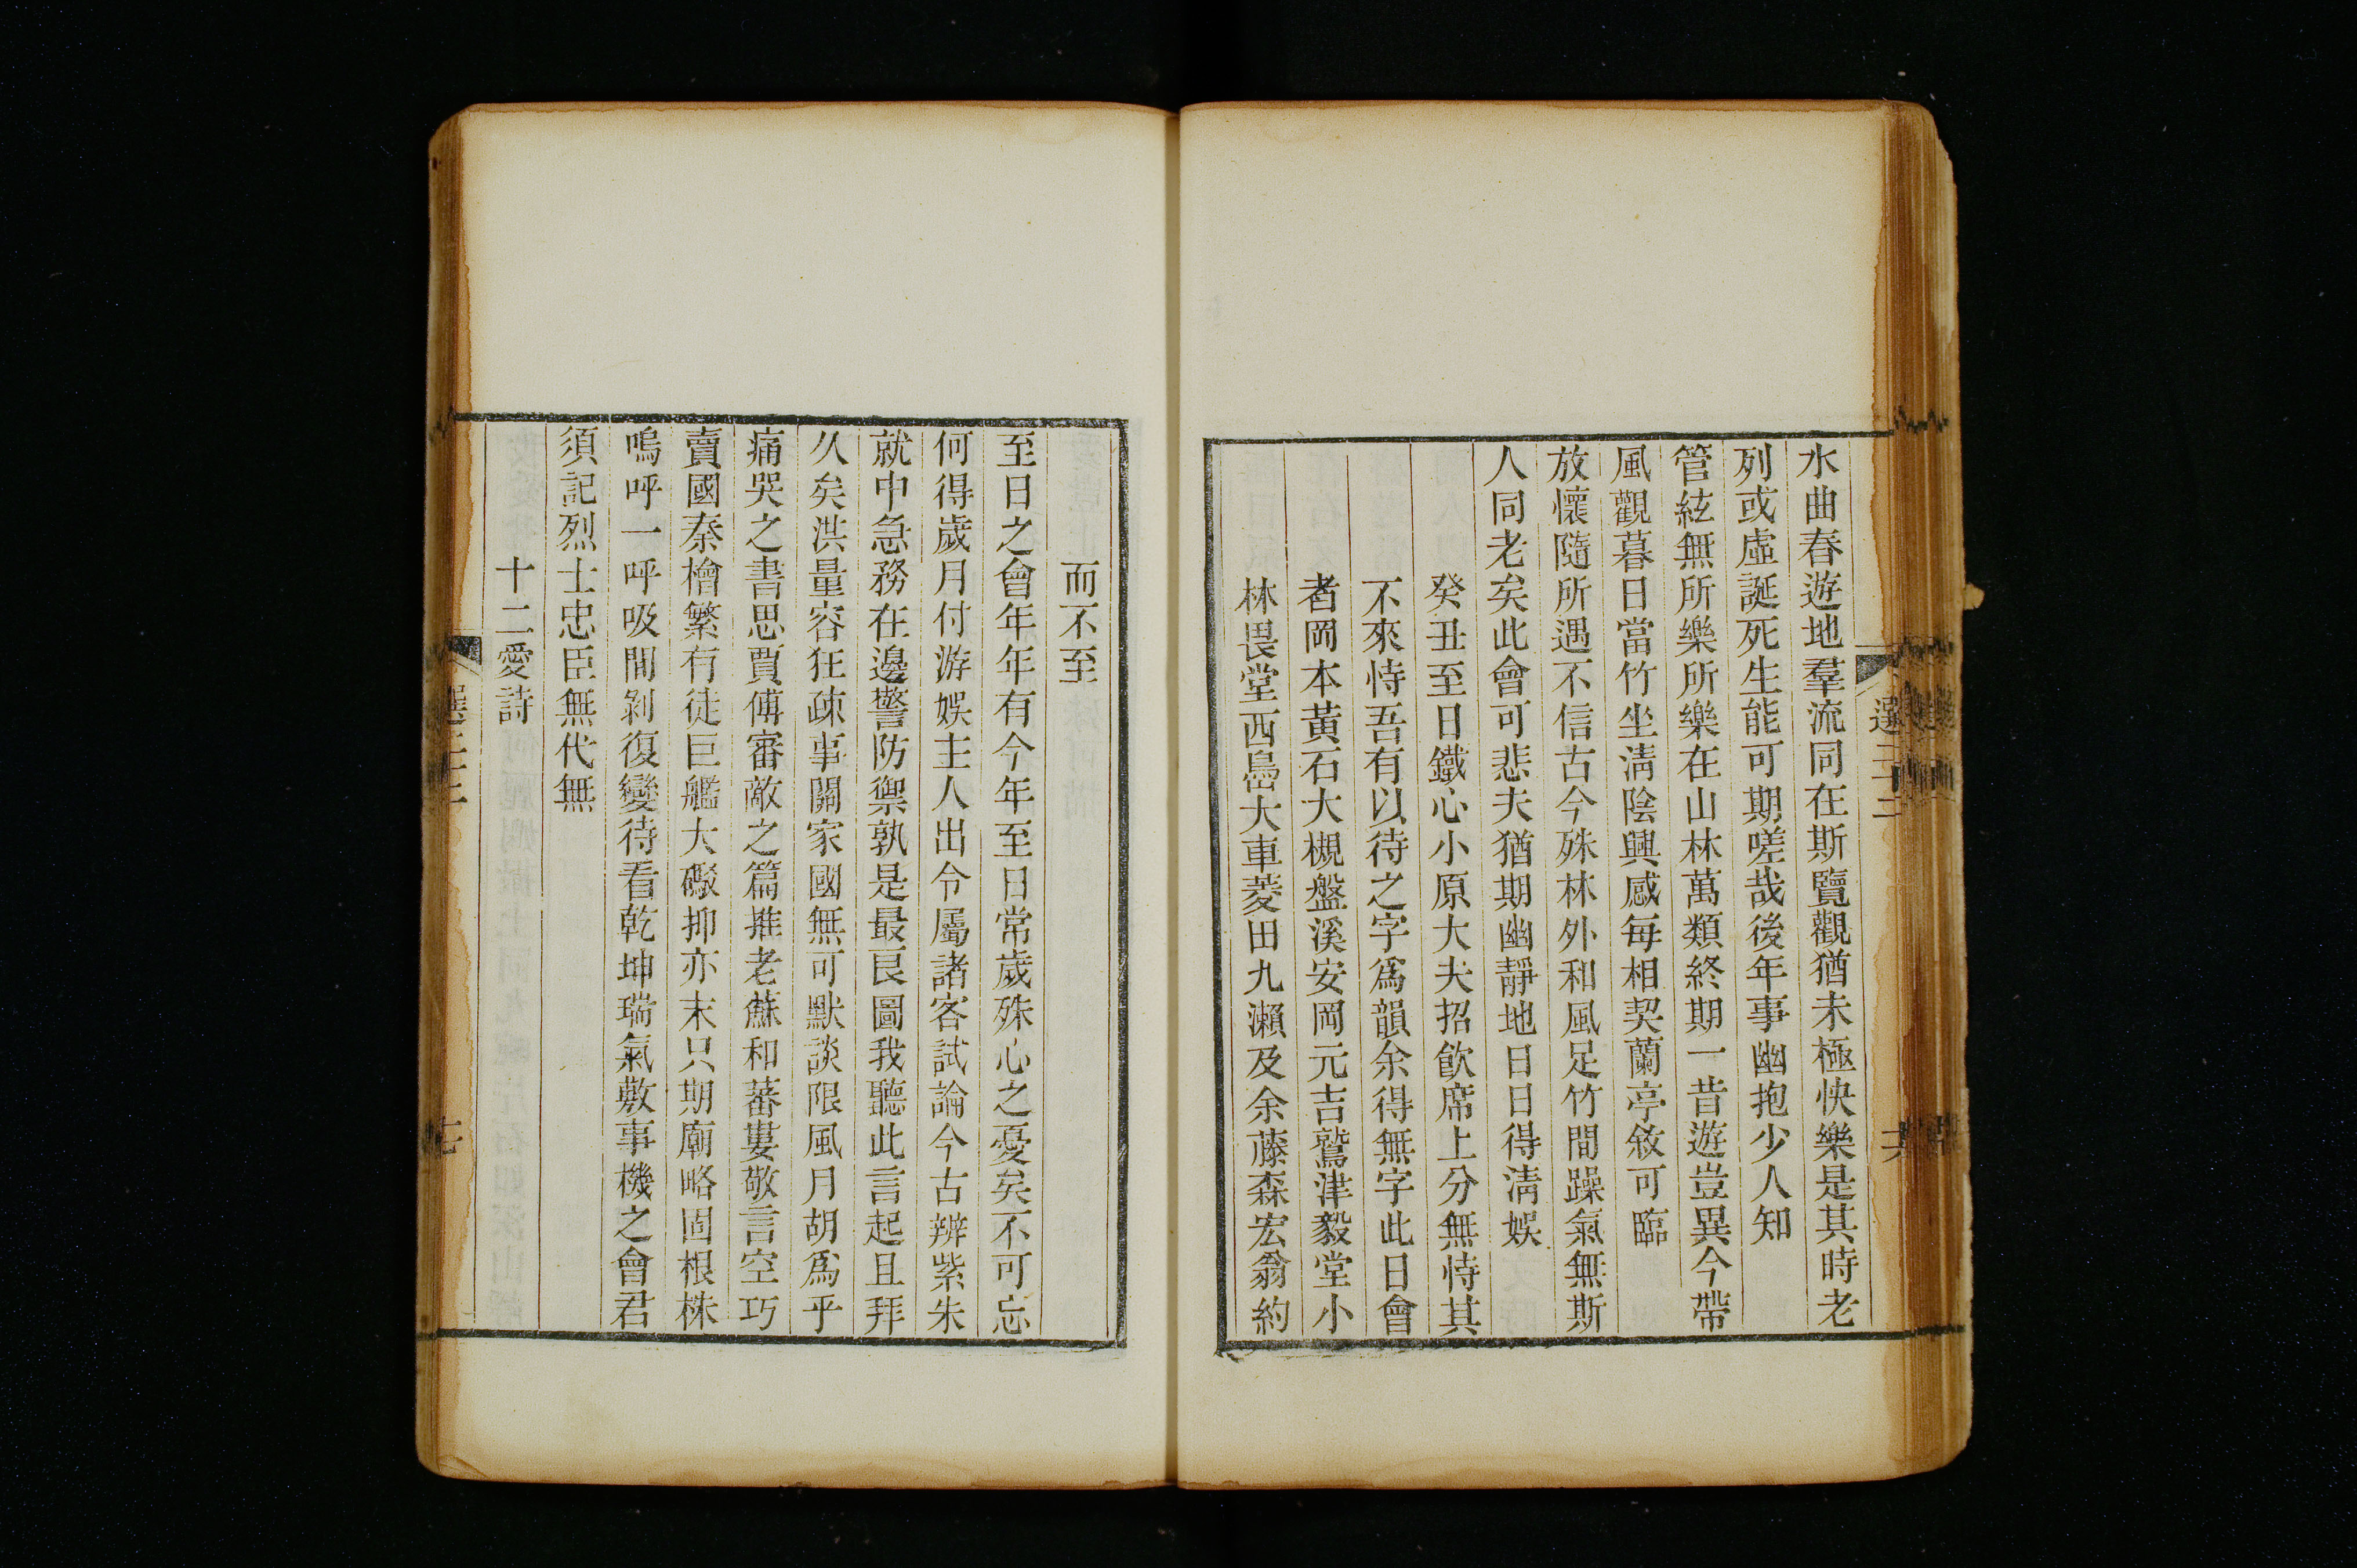 水曲春遊地羣流同在斯覽觀猶未極快樂是其時老
列或虛誕死生能可期嗟哉後年事幽抱少人知
管絃無所樂所樂在山林萬類終期一昔遊豈異今帶
風觀暮日當竹坐淸陰興感每相契蘭亭敘可臨
放懷隨所遇不信古今殊林外和風足竹間躁氣無斯
人同老矣此會可悲夫猶期幽靜地日日得淸娛
癸丑至日鐵心小原大夫招飮席上分無恃其
不來恃吾有以待之字爲韻余得無字此日會
者岡本黃石大槻盤溪安岡元吉鷲津毅堂小
林畏堂西島大車菱田九瀨及余藤森宏翁約
而不至
至日之會年年有今年至日常歲殊心之憂矣不可忘
何得歲月付游娛主人出令屬諸客試論今古辨紫朱
就中急務在邊警防禦孰是最良圖我聽此言起且拜
久矣洪量容狂疎事關家國無可默談限風月胡爲乎
痛哭之書思賈傅審敵之篇推老蘇和蕃婁敬言空巧
賣國秦檜繁有徒巨艦大礮抑亦末只期廟略固根株
嗚呼一呼吸間剝復變待看乾坤瑞氣敷事機之會君
須記烈士忠臣無代無
十二愛詩